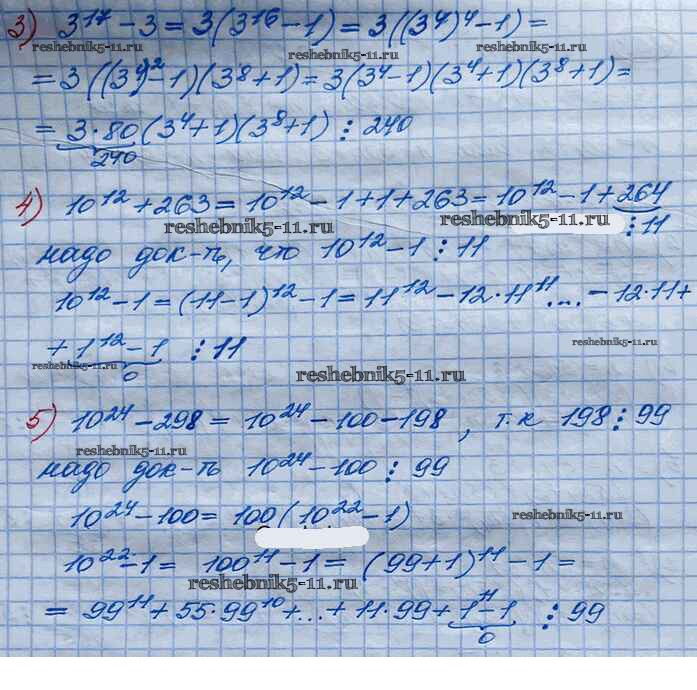 3) 3¹⁷ - 3 = 3(3¹⁶ - 1) = 3((3⁴)⁴ - 1) =
reshebnik5-11.ru reshebnik5-11.ru
= 3((3⁴)² - 1)(3⁸ + 1) = 3(3⁴ - 1)(3⁴ + 1)(3⁸ + 1) =
= 3 · 80 (3⁴ + 1)(3⁸ + 1) ⋮ 240
240
4) 10¹² + 263 = 10¹² - 1 + 1 + 263 = 10¹² - 1 + 264
reshebnik5-11.ru reshebnik5-11.ru
⋮ 11
надо док-ть, что 10¹² - 1 ⋮ 11
10¹² - 1 = (11 - 1)¹² - 1 = 11¹² - 12 · 11¹¹ ... - 12 · 11 +
+ 1¹² - 1 ⋮ 11
0
reshebnik5-11.ru reshebnik5-11.ru reshebnik5-11.ru
5) 10²⁴ - 298 = 10²⁴ - 100 - 198, т.к 198 ⋮ 99
reshebnik5-11.ru
надо док-ть 10²⁴ - 100 ⋮ 99
10²⁴ - 100 = 100(10²² - 1)
reshebnik5-11.ru
10²² - 1 = 100¹¹ - 1 = (99 + 1)¹¹ - 1 =
reshebnik5-11.ru
= 99¹¹ + 55 · 99¹⁰ + ... + 11 · 99 + 1¹¹ - 1 ⋮ 99
0